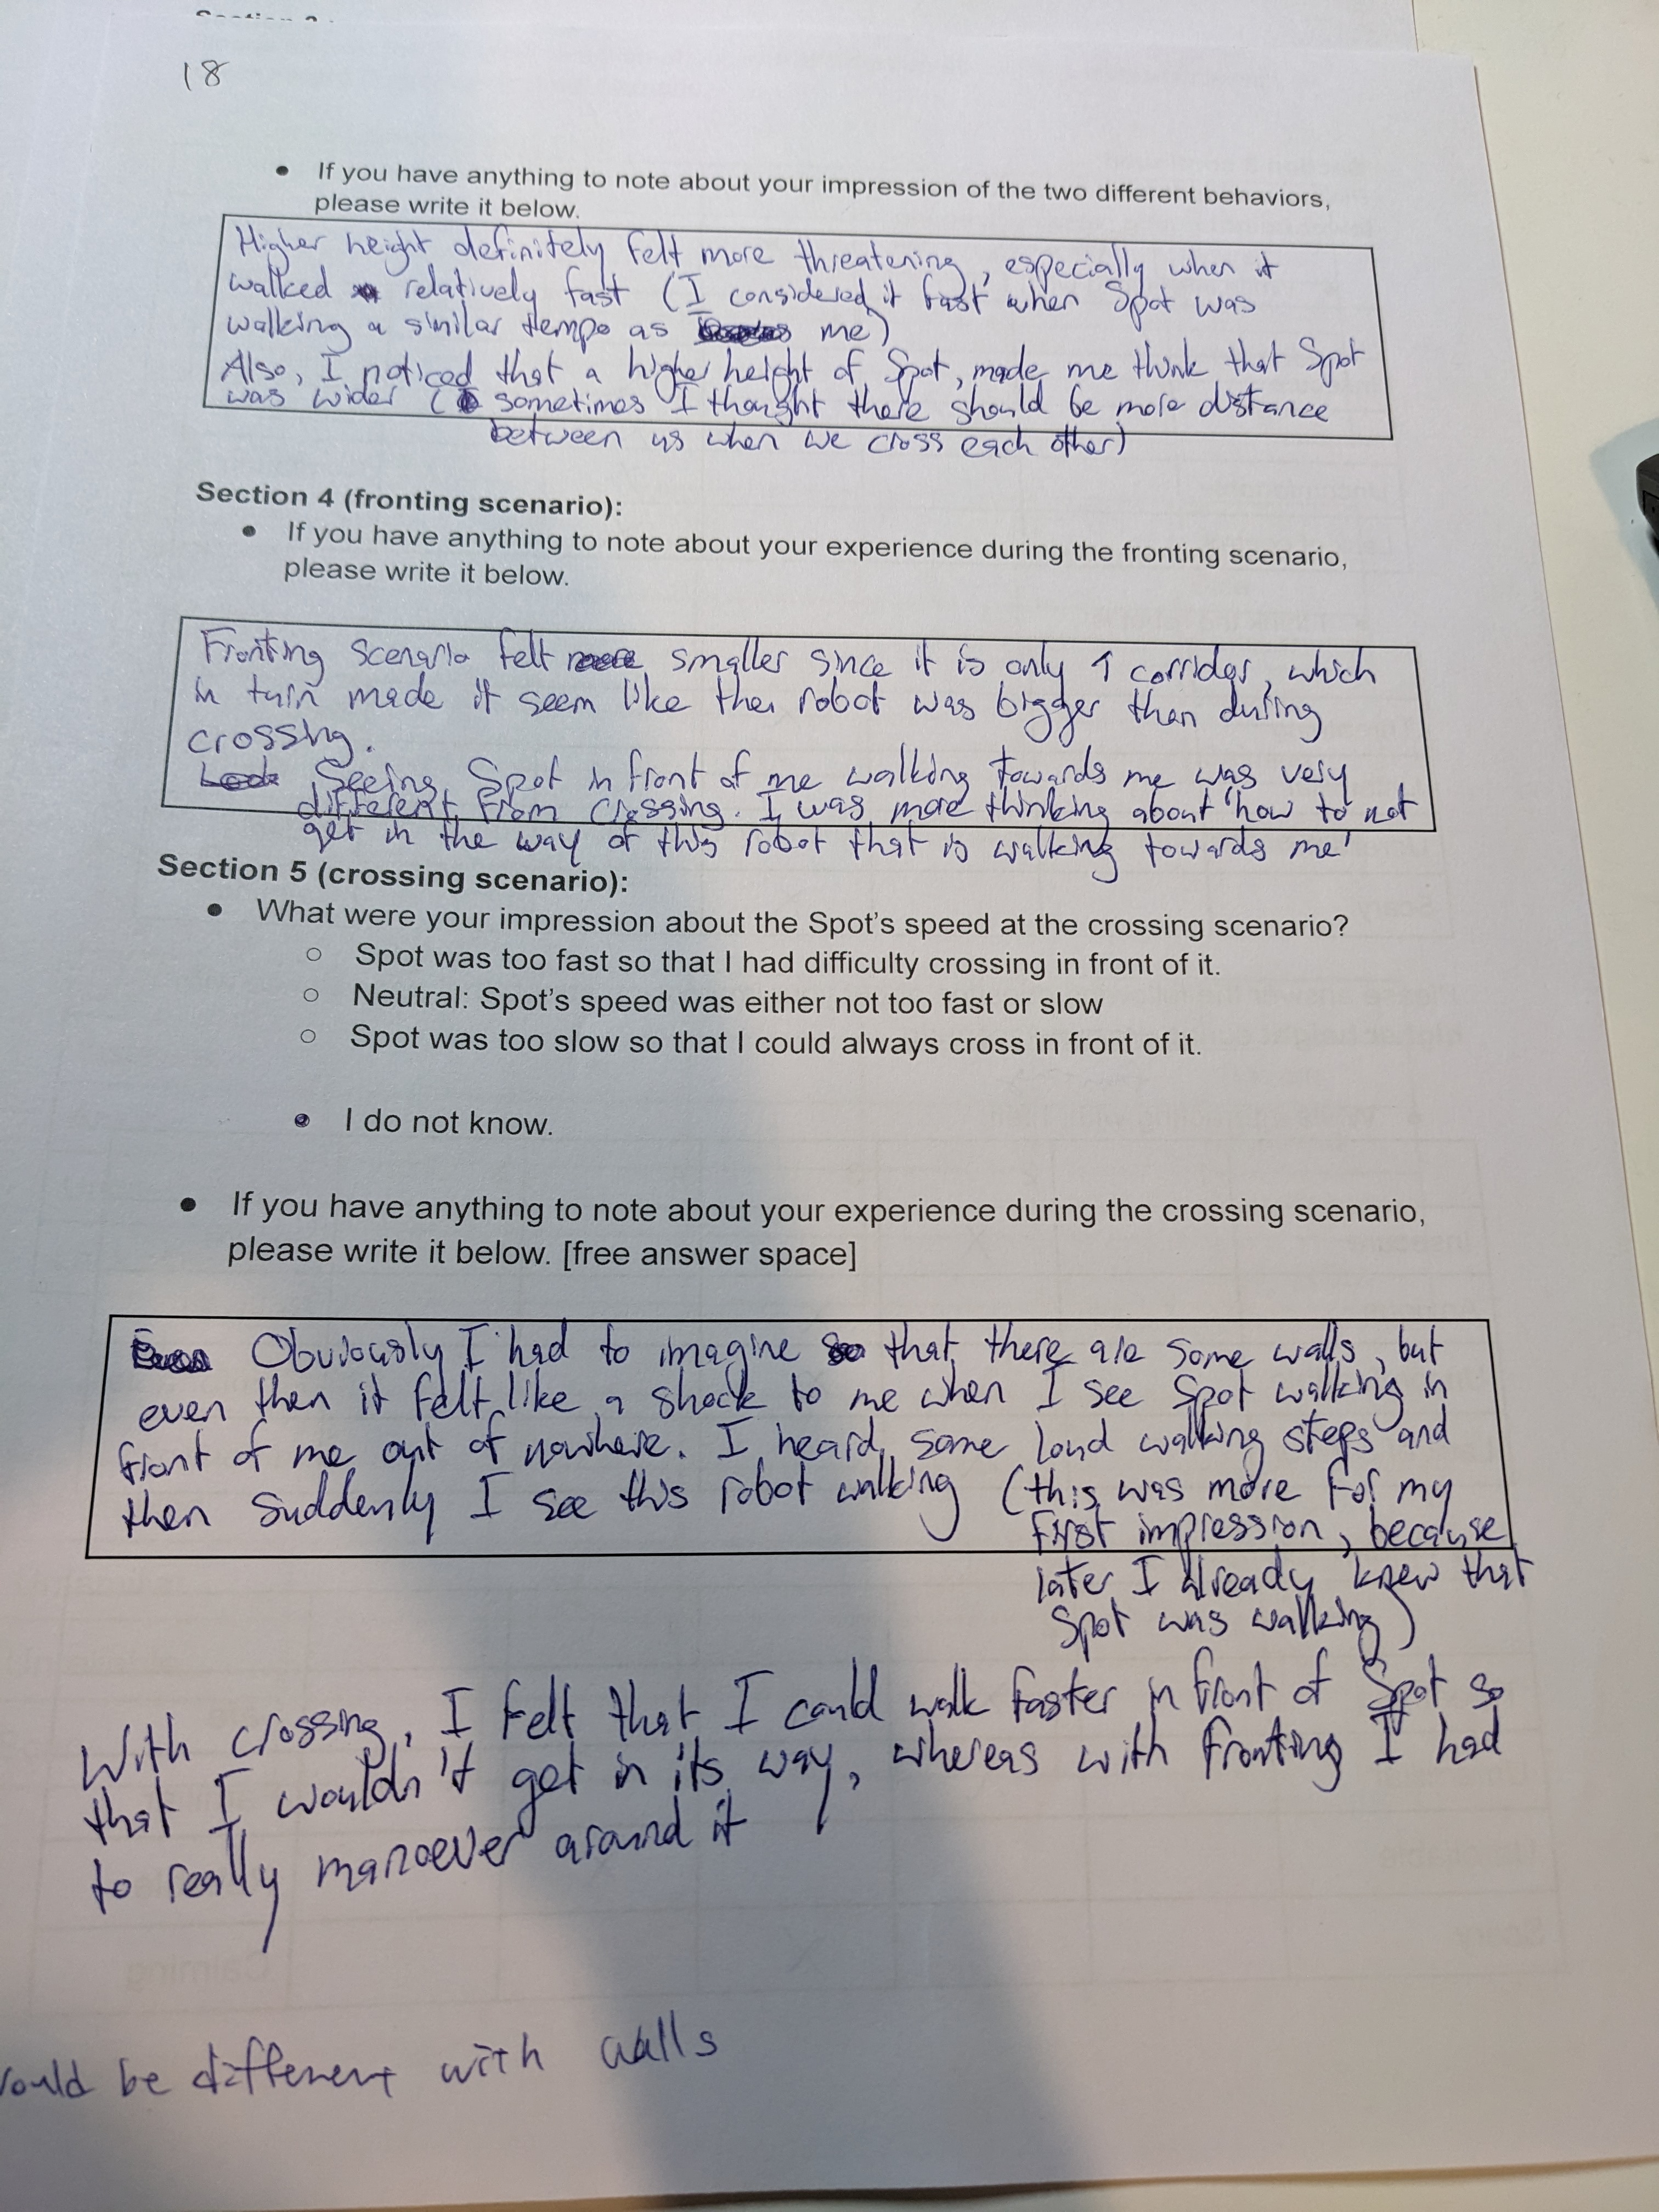 18
• If you have anything to note about your impression of the two different behaviors,
please write it below.
Higher height definitely felt more threatening, especially when it
walked relatively fast (I considered it fast when Spot was
walking a similar tempo as me)
Also, I noticed that a higher height of Spot, made me think that Spot
was wider ( sometimes I thought there should be more distance
between us when we cross each other)
Section 4 (fronting scenario):
• If you have anything to note about your experience during the fronting scenario,
please write it below.
Fronting scenario felt smaller since it is only 1 corridor, which
in turn made it seem like the robot was bigger than during
crossing.
Seeing Spot in front of me walking towards me was very
different from crossing. I was more thinking about 'how to not
get in the way of this robot that is walking towards me'
Section 5 (crossing scenario):
• What were your impression about the Spot's speed at the crossing scenario?
○ Spot was too fast so that I had difficulty crossing in front of it.
○ Neutral: Spot's speed was either not too fast or slow
○ Spot was too slow so that I could always cross in front of it.
• I do not know.
• If you have anything to note about your experience during the crossing scenario,
please write it below. [free answer space]
Obviously I had to imagine that there are some walls, but
even then it felt like a shock to me when I see Spot walking in
front of me out of nowhere. I heard some loud walking steps and
then suddenly I see this robot walking (this was more for my
first impression, because
later I already knew that
Spot was walking)
With crossing, I felt that I could walk faster in front of Spot so
that I wouldn't get in its way, whereas with fronting I had
to really manoever around it
would be different with walls